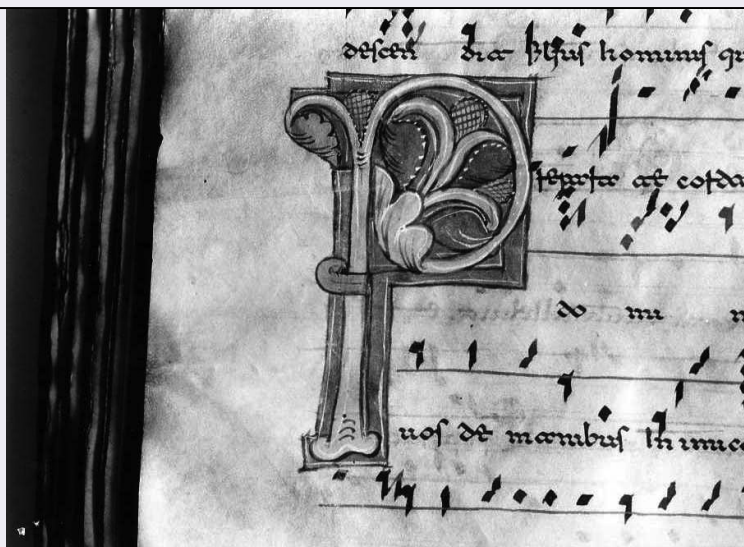 descen dit filius hominis qu
Preparate corda
do mi n
uos de manibus inimico